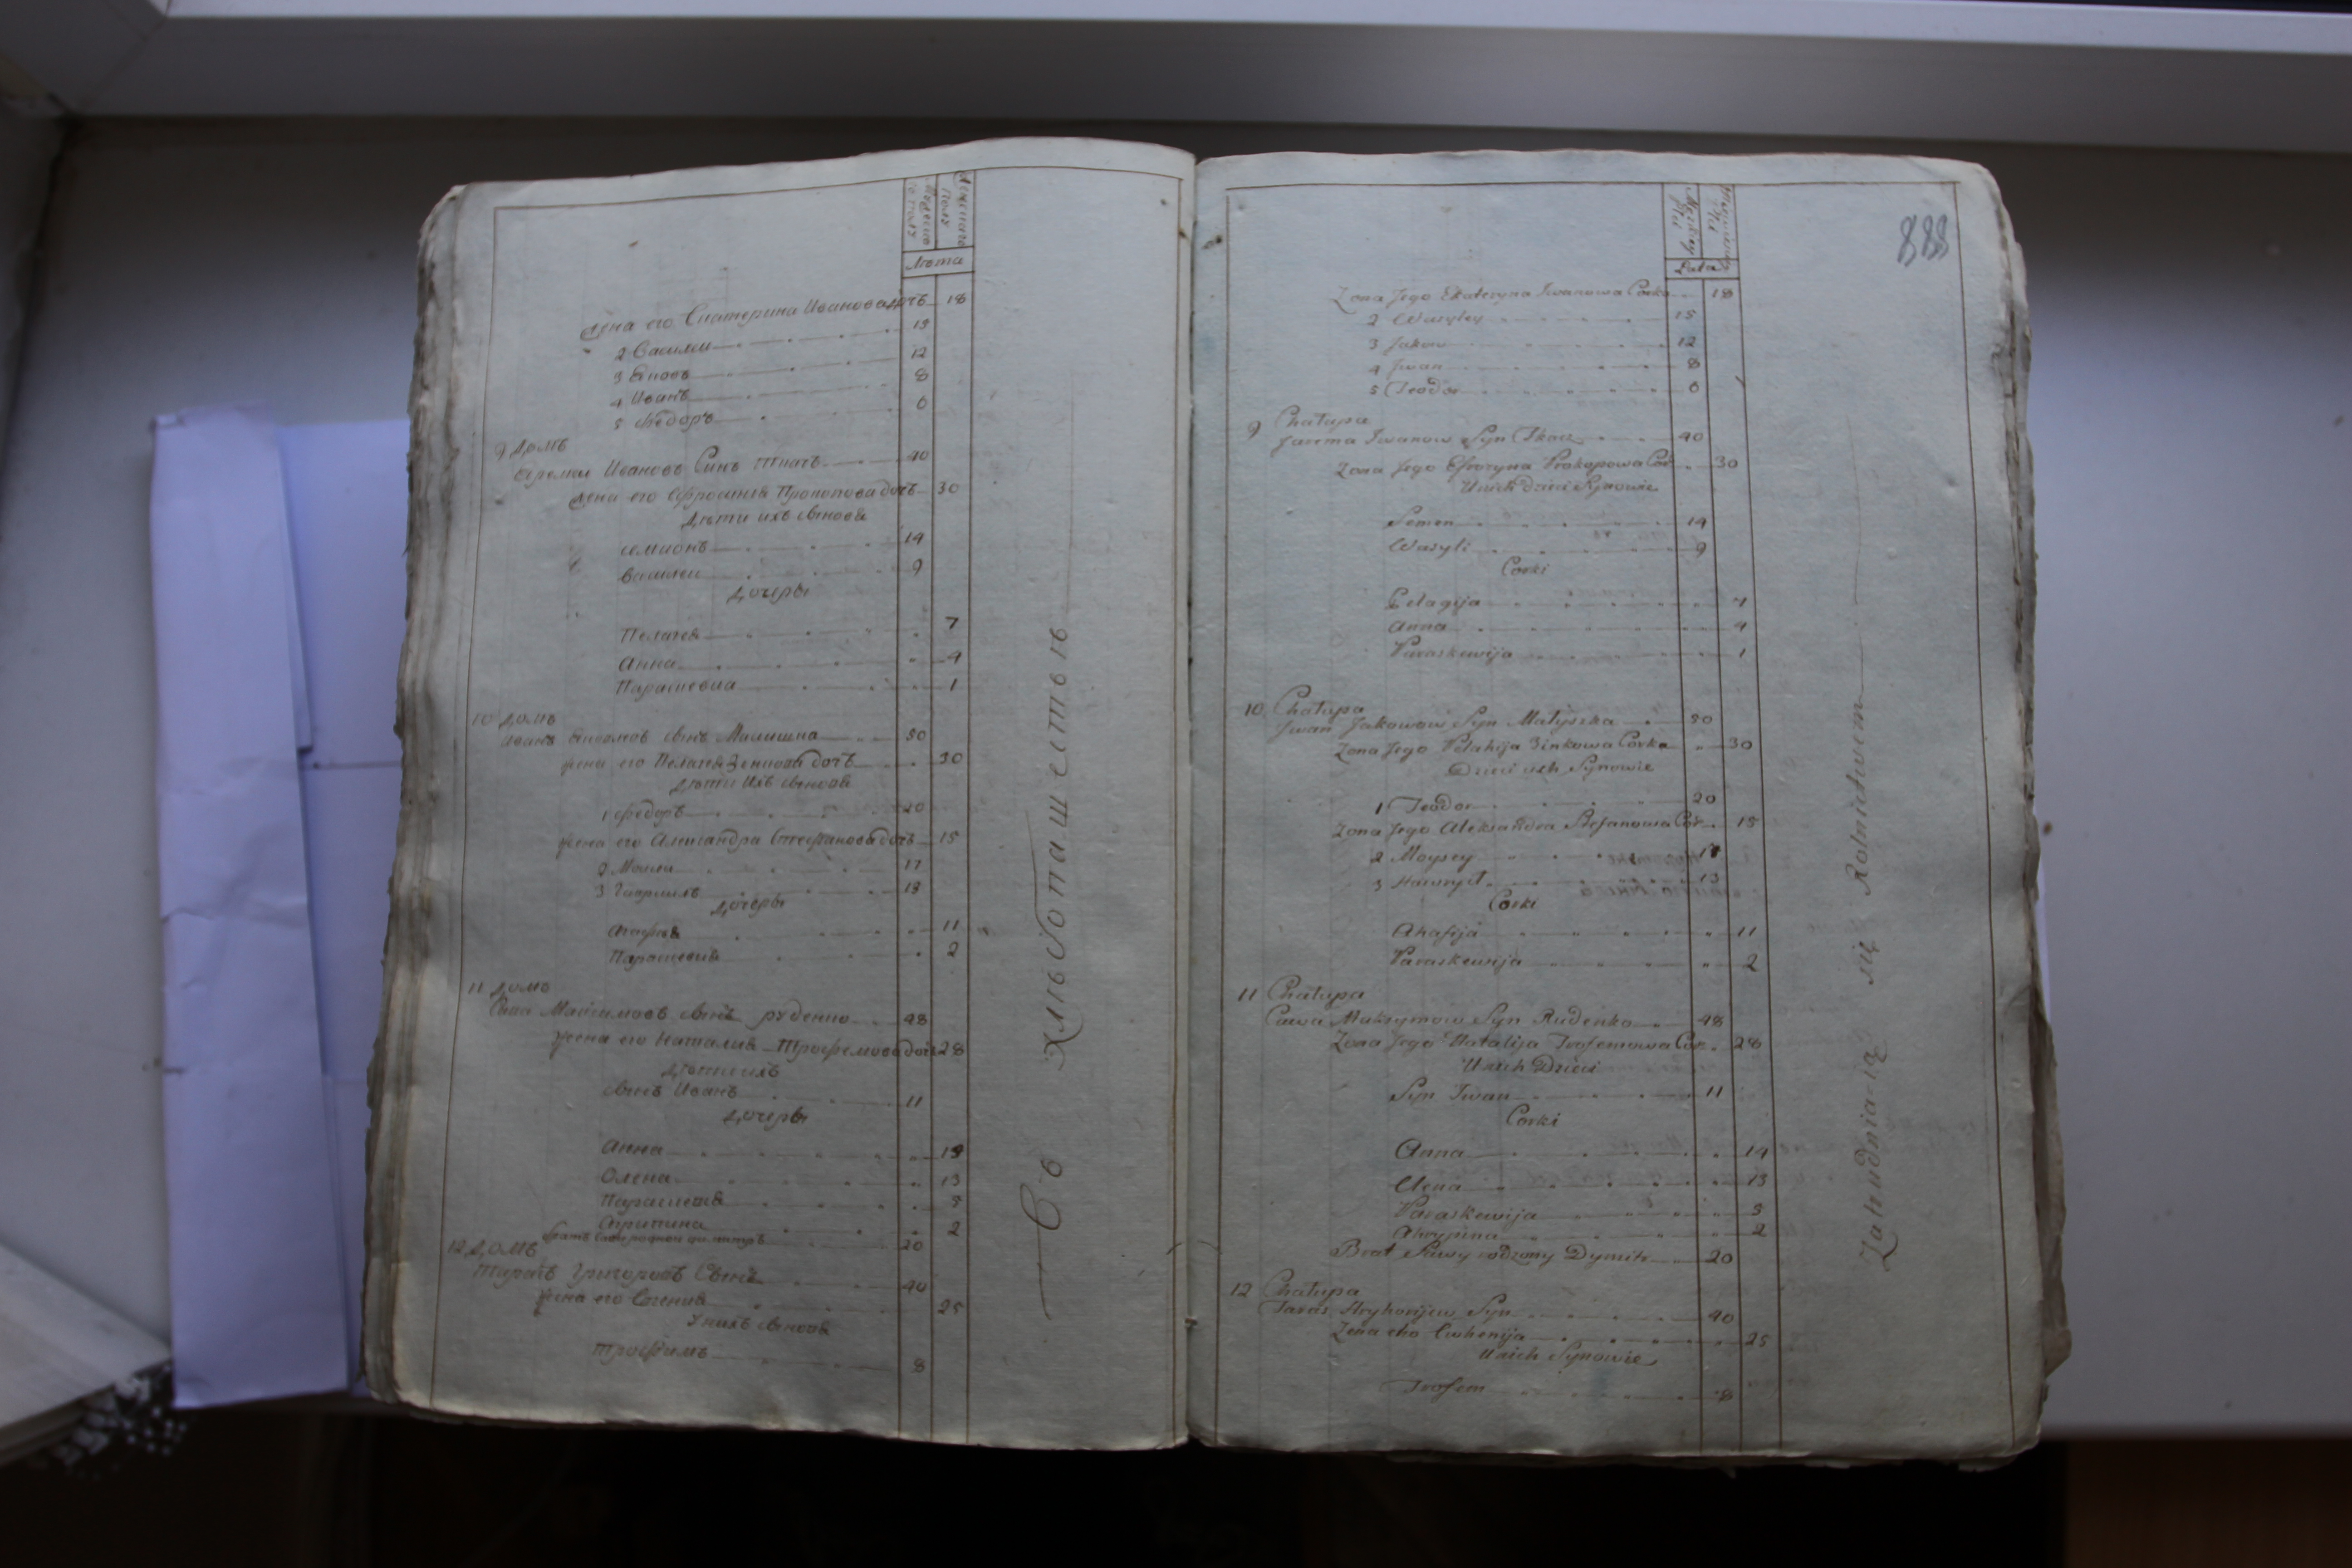 Мужеска
го полу
Женскаго
Полу
Лѣта
жена его Екатерина Иванова дочь 18
2 Василей 15
3 Яковъ 12
4 Иванъ 8
5 Федоръ 6
9 Домъ
Ярема Ивановъ Синъ Ткачъ 40
жена его Ефросиния Прокопова дочь 30
Дѣти ихъ сынове
семионъ 14
василей 9
дочеры
Пелагея 7
Анна 4
Параскевиа 1
10 домъ
иванъ Якимовъ сынъ Малишка 50
жена его Пелагея Зенкова дочь 30
дѣти Ихъ сынове
1 федоръ 20
жена его Александра Стефанова дочь 15
2 Моисей 17
3 Гавриилъ 13
дочеры
Агафия 11
Параскевия 2
11 домъ
Сава Максимовъ сынъ руденко 48
жена его Наталия Трофемова дочь 28
дѣти ихъ
сынъ Иванъ 11
дочеры
Анна 14
Олена 13
Параскевия 5
Агрипина 2
братъ Савы родной димитръ 20
12 Домъ
тарасъ Григоровъ Сынъ 40
жена его Евгения 25
У нихъ сынове
трофимъ 8
Съ хлѣбопашествъ
888
Męzkiey
Płci
Płci
Lata
Zona Jego Ekateryna Iwanowa Corka 18
2 Wasyley 15
3 Jakow 12
4 Jwan 8
5 Teodor 6
9 Chałupa
Jarema Iwanow Syn Tkacz 40
Zona Jego Efrozyna Prokopowa Cor 30
Unich dzieci Synowie
Semen 14
Wasyli 9
Corki
Pelagija 7
Anna 4
Paraskewija 1
10 Chałupa
Jwan Jakowow Syn Małyszka 50
Zona Jego Pelahija Zinkowa Corka 30
Dzieci ich Synowie
1 Teodor 20
Zona Jego Aleksandra Stefanowa Cor 15
2 Moysey 17
3 Hawryił 13
Corki
Ahafija 11
Paraskewija 2
11 Chałupa
Sawa Maksymow Syn Rudenko 48
Zona Jego Natalija Trofemowa Cor 28
Unich Dzieci
Syn Iwan 11
Corki
Anna 14
Olena 13
Paraskewija 5
Ahrypina 2
Brat Sawy rodzony Dymitr 20
12 Chałupa
Taras Hryhorijew Syn 40
Zona eho Ewhenija 25
Unich Synowie
Trofem 8
Zatrudnia-ią się Rolnictwem